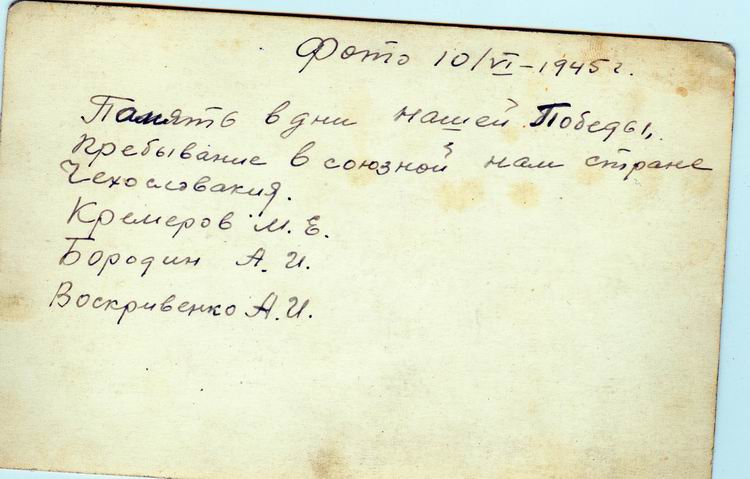 Фото 10/VI-1945г.
Память в дни нашей Победы,
пребывание в союзной нам стране
Чехословакия.
Кремеров М. Е.
Бородин А. И.
Воскривенко А. И.